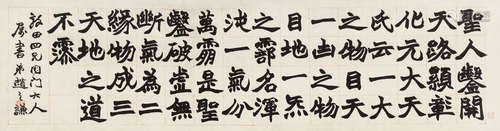 聖人鑿開
天路顯彰
化元大天
氏云一大
之物目天
一凷之物
目地一炁
之霛名渾
沌一氣分
萬霛是聖
鑿破虛無
斷氣為二
緣物成三
天地之道
不
叔田四兄同門大人
屬書弟趙之謙